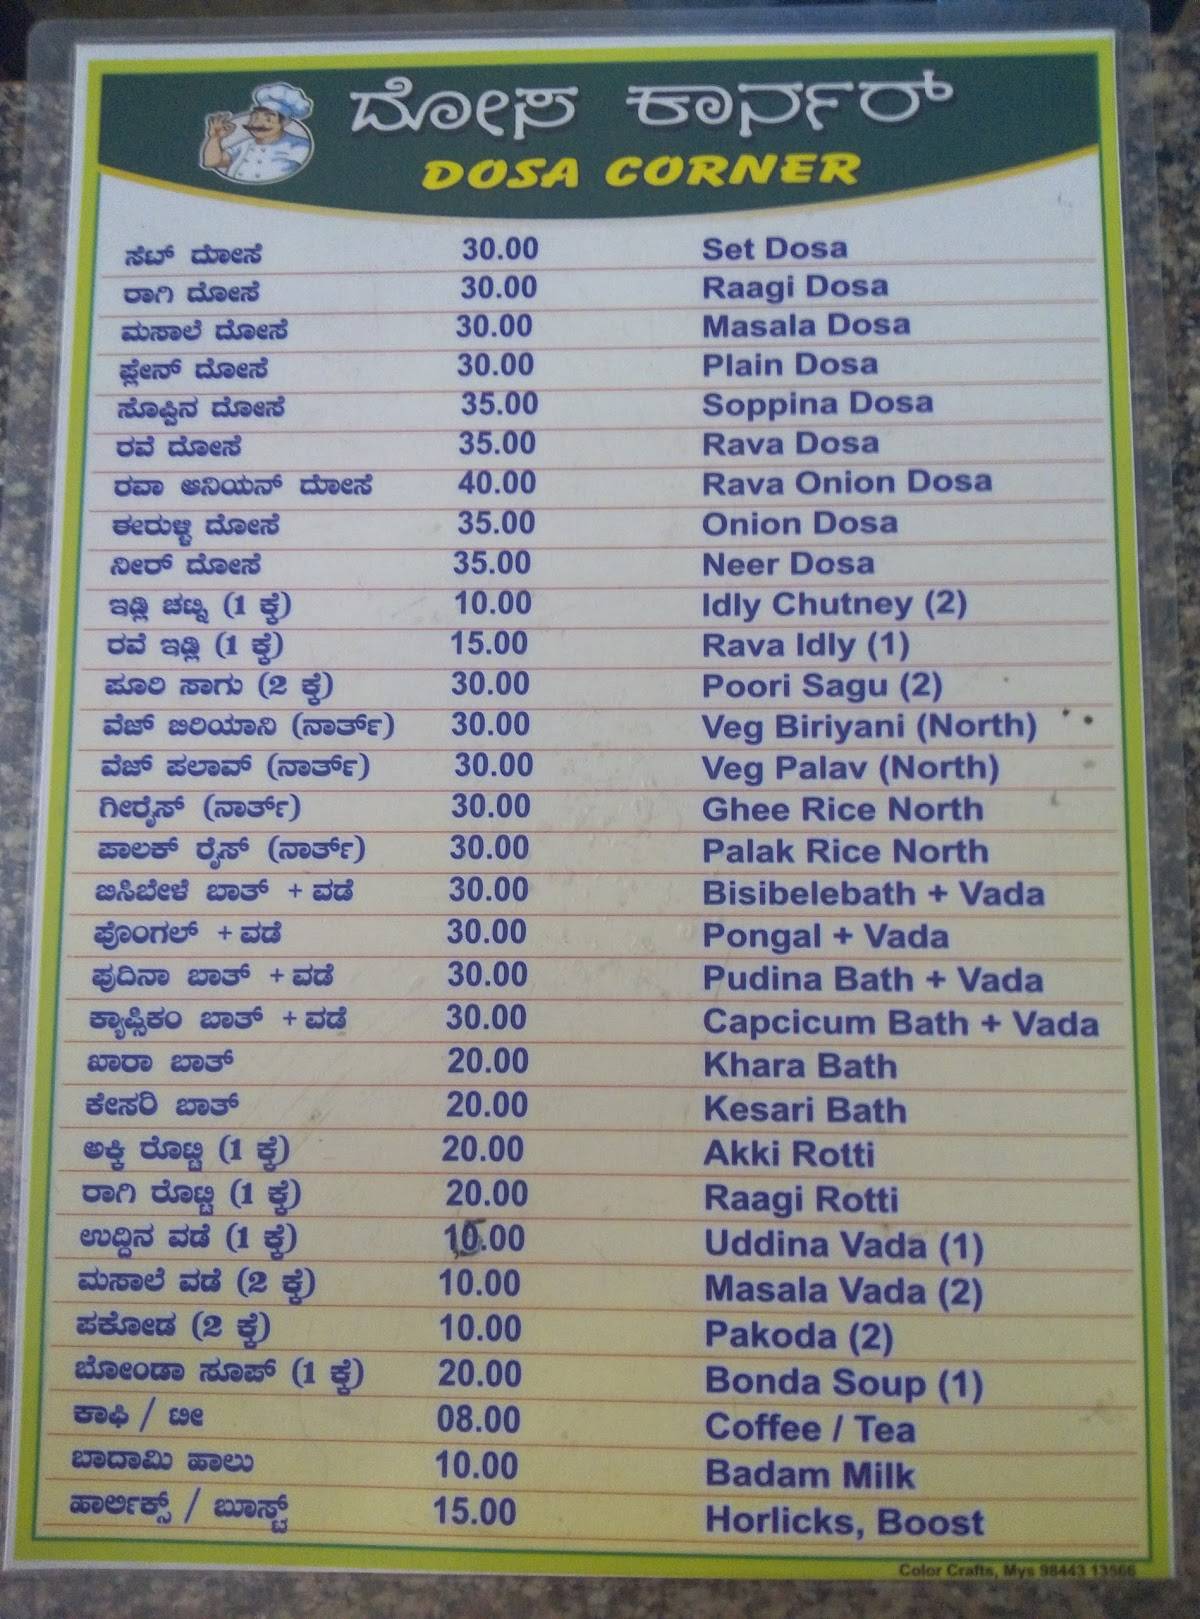 ದೋಸ ಕಾರ್ನರ್
DOSA CORNER
ಸೆಟ್ ದೋಸೆ 30.00 Set Dosa
ರಾಗಿ ದೋಸೆ 30.00 Raagi Dosa
ಮಸಾಲೆ ದೋಸೆ 30.00 Masala Dosa
ಪ್ಲೇನ್ ದೋಸೆ 30.00 Plain Dosa
ಸೊಪ್ಪಿನ ದೋಸೆ 35.00 Soppina Dosa
ರವೆ ದೋಸೆ 35.00 Rava Dosa
ರವಾ ಆನಿಯನ್ ದೋಸೆ 40.00 Rava Onion Dosa
ಈರುಳ್ಳಿ ದೋಸೆ 35.00 Onion Dosa
ನೀರ್ ದೋಸೆ 35.00 Neer Dosa
ಇಡ್ಲಿ ಚಟ್ನಿ (1 ಕ್ಕೆ) 10.00 Idly Chutney (2)
ರವೆ ಇಡ್ಲಿ (1 ಕ್ಕೆ) 15.00 Rava Idly (1)
ಪೂರಿ ಸಾಗು (2 ಕ್ಕೆ) 30.00 Poori Sagu (2)
ವೆಜ್ ಬಿರಿಯಾನಿ (ನಾರ್ತ್) 30.00 Veg Biriyani (North)
ವೆಜ್ ಪಲಾವ್ (ನಾರ್ತ್) 30.00 Veg Palav (North)
ಗೀರೈಸ್ (ನಾರ್ತ್) 30.00 Ghee Rice North
ಪಾಲಕ್ ರೈಸ್ (ನಾರ್ತ್) 30.00 Palak Rice North
ಬಿಸಿಬೇಳೆ ಬಾತ್ + ವಡೆ 30.00 Bisibelebath + Vada
ಪೊಂಗಲ್ + ವಡೆ 30.00 Pongal + Vada
ಪುದಿನಾ ಬಾತ್ + ವಡೆ 30.00 Pudina Bath + Vada
ಕ್ಯಾಪ್ಸಿಕಂ ಬಾತ್ + ವಡೆ 30.00 Capcicum Bath + Vada
ಖಾರಾ ಬಾತ್ 20.00 Khara Bath
ಕೇಸರಿ ಬಾತ್ 20.00 Kesari Bath
ಅಕ್ಕಿ ರೊಟ್ಟಿ (1 ಕ್ಕೆ) 20.00 Akki Rotti
ರಾಗಿ ರೊಟ್ಟಿ (1 ಕ್ಕೆ) 20.00 Raagi Rotti
ಉದ್ದಿನ ವಡೆ (1 ಕ್ಕೆ) 15.00 Uddina Vada (1)
ಮಸಾಲೆ ವಡೆ (2 ಕ್ಕೆ) 10.00 Masala Vada (2)
ಪಕೋಡ (2 ಕ್ಕೆ) 10.00 Pakoda (2)
ಬೋಂಡಾ ಸೂಪ್ (1 ಕ್ಕೆ) 20.00 Bonda Soup (1)
ಕಾಫಿ / ಟೀ 08.00 Coffee / Tea
ಬಾದಾಮಿ ಹಾಲು 10.00 Badam Milk
ಹಾರ್ಲಿಕ್ಸ್ / ಬೂಸ್ಟ್ 15.00 Horlicks, Boost
Color Crafts, Mys 98443 13566